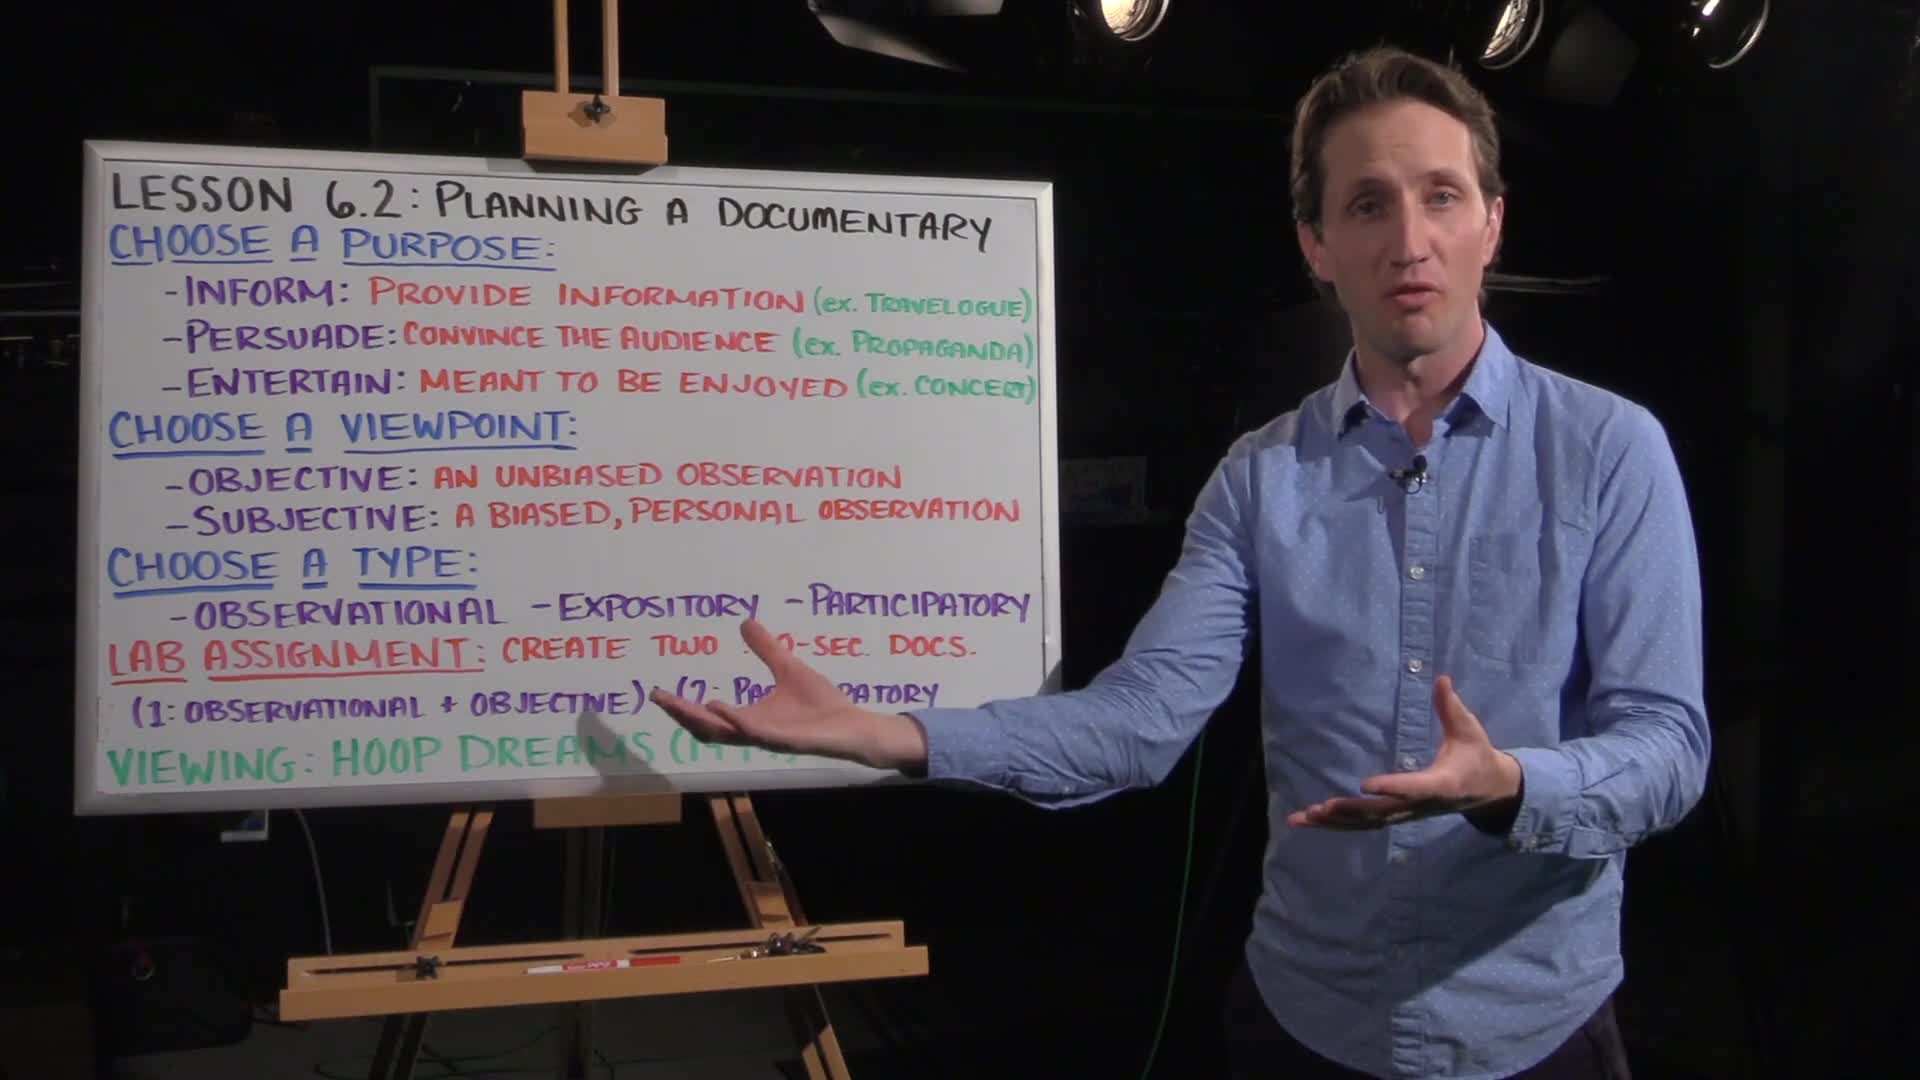 LESSON 6.2: PLANNING A DOCUMENTARY
CHOOSE A PURPOSE:
-INFORM: PROVIDE INFORMATION (ex. TRAVELOGUE)
-PERSUADE: CONVINCE THE AUDIENCE (ex. PROPAGANDA)
-ENTERTAIN: MEANT TO BE ENJOYED (ex. CONCERT)
CHOOSE A VIEWPOINT:
-OBJECTIVE: AN UNBIASED OBSERVATION
-SUBJECTIVE: A BIASED, PERSONAL OBSERVATION
CHOOSE A TYPE:
-OBSERVATIONAL -EXPOSITORY -PARTICIPATORY
LAB ASSIGNMENT: CREATE TWO -SEC. DOCS.
(1: OBSERVATIONAL + OBJECTIVE) (2:
VIEWING: HOOP DREAMS